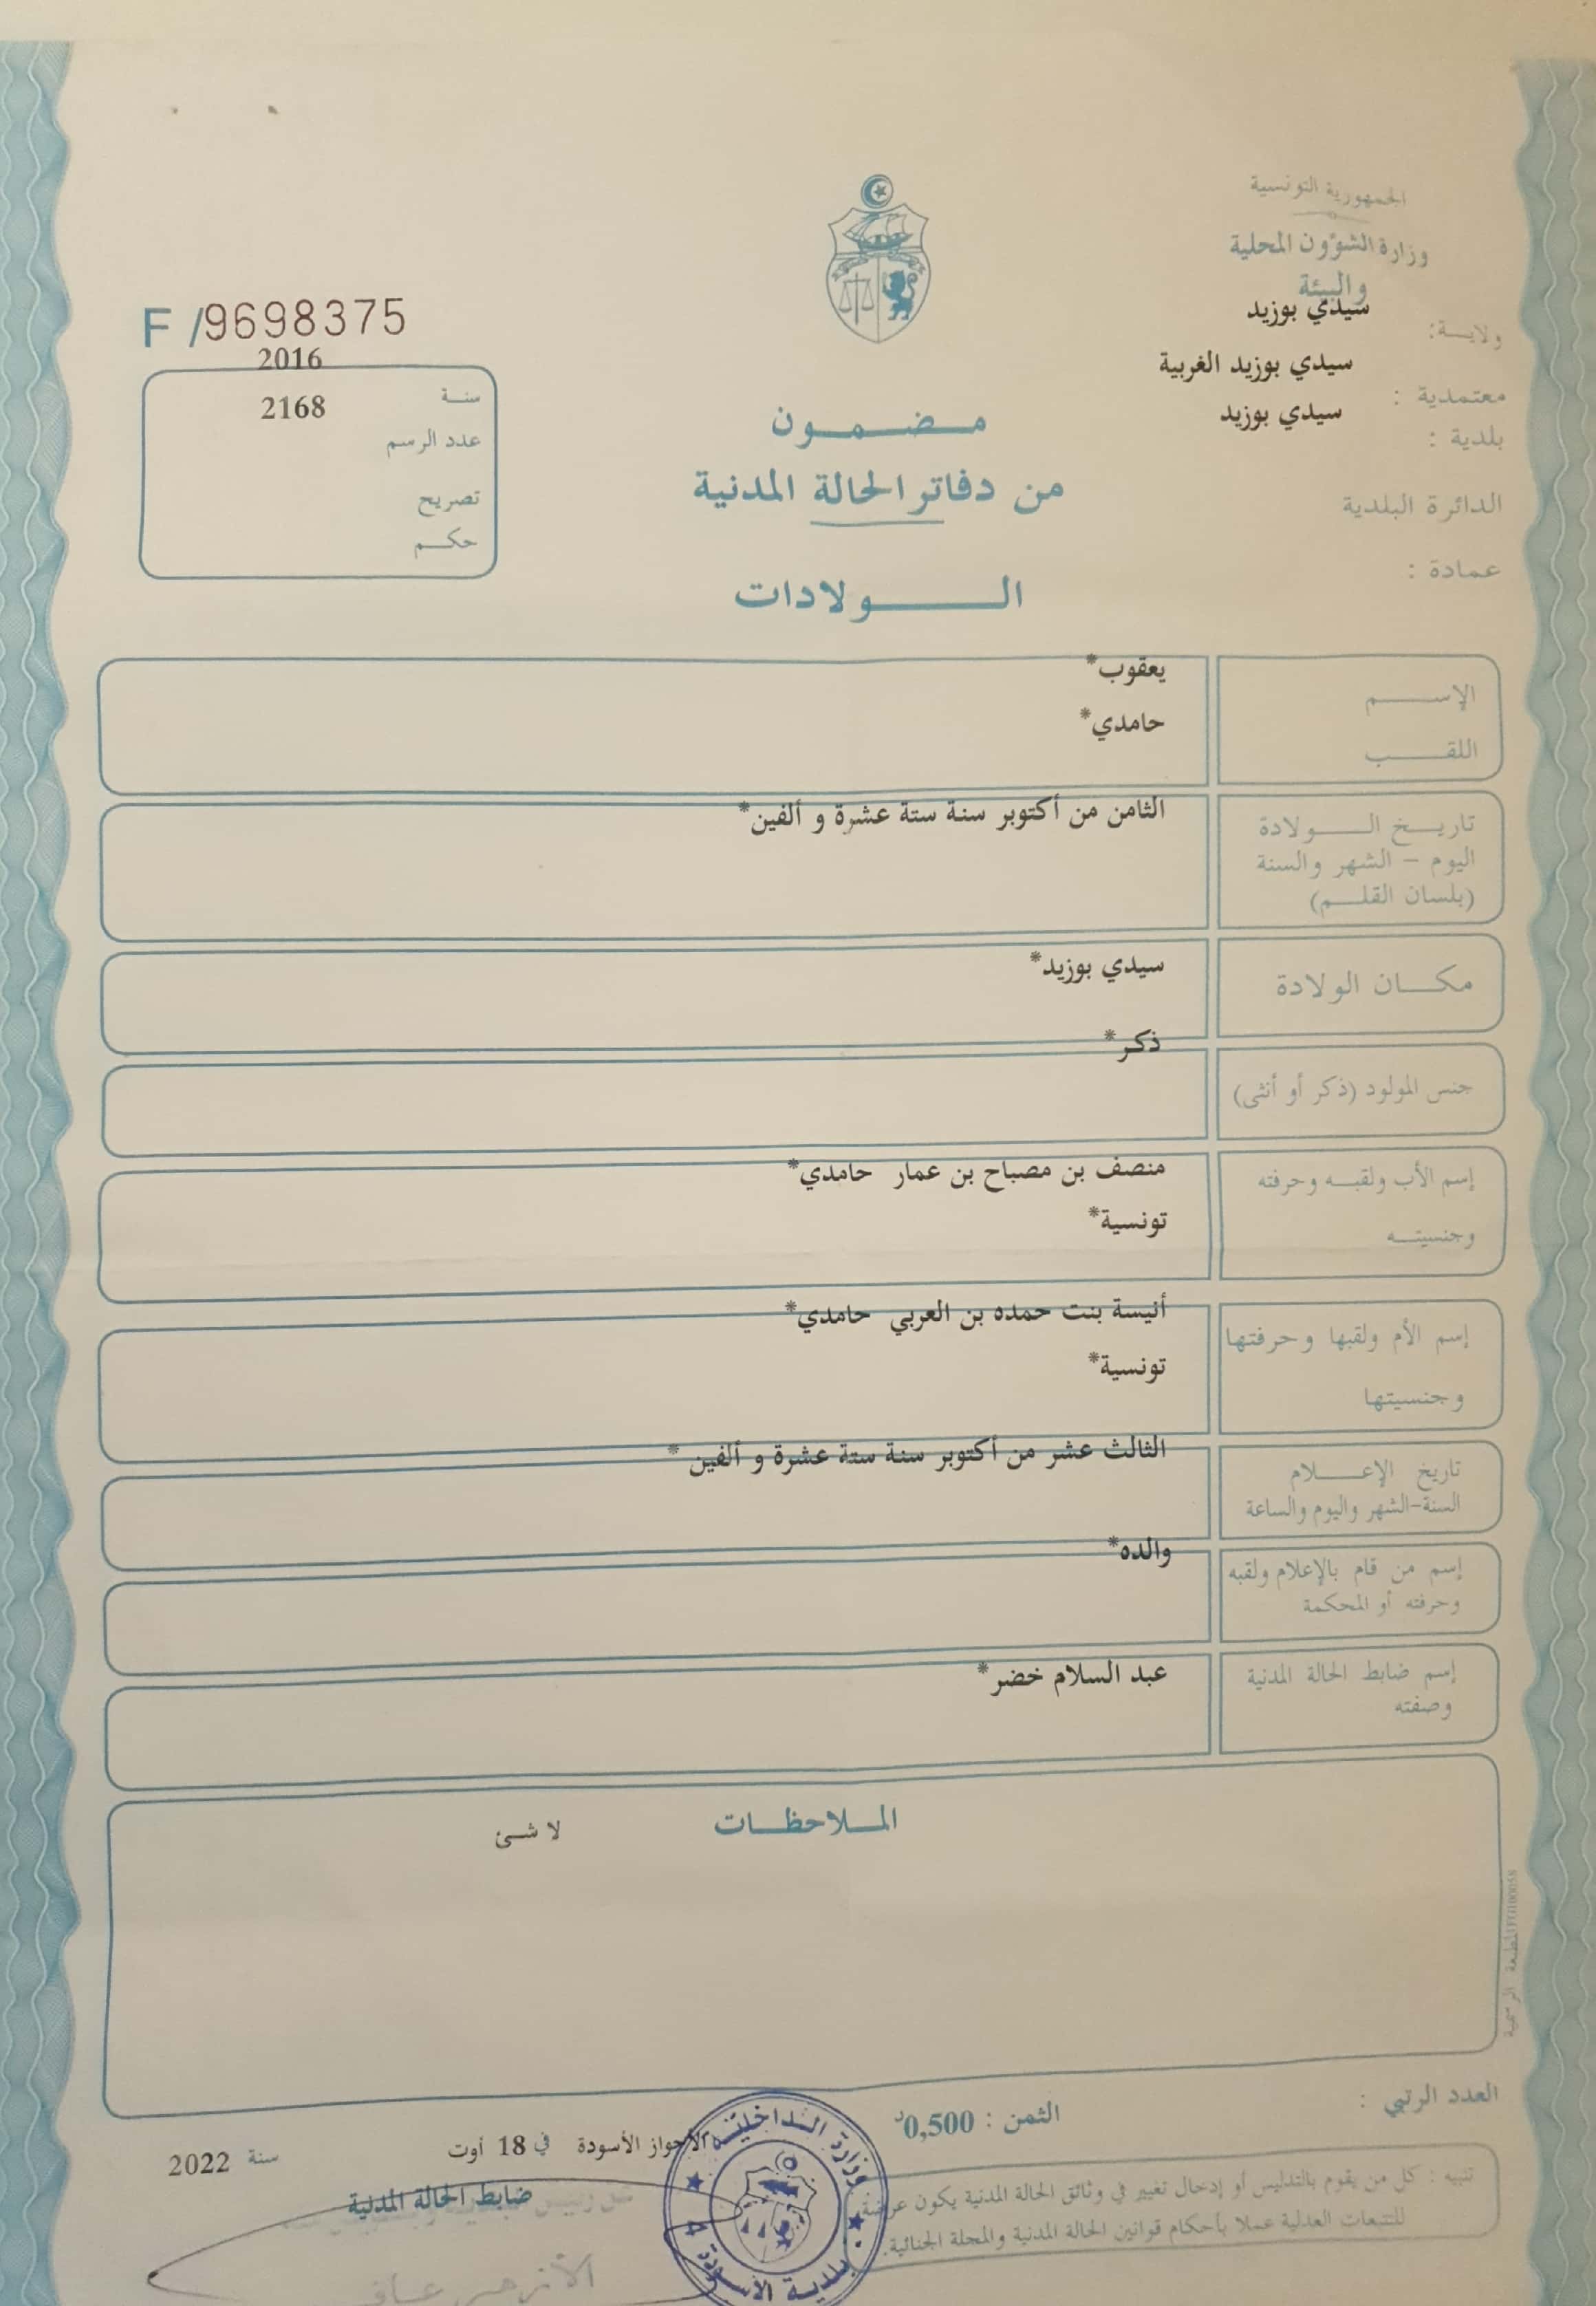 الجمهورية التونسية
وزارة الشؤون المحلية
والبيئة
ولاية: سيدي بوزيد
معتمدية : سيدي بوزيد الغربية
بلدية : سيدي بوزيد
الدائرة البلدية
عمادة :
F /9698375
سنة 2016
عدد الرسم 2168
تصريح
حكم
مضمون
من دفاتر الحالة المدنية
الولادات
الإسم يعقوب*
اللقب حامدي*
تاريخ الولادة الثامن من أكتوبر سنة ستة عشرة و ألفين*
اليوم - الشهر والسنة
(بلسان القلم)
مكان الولادة سيدي بوزيد*
جنس المولود (ذكر أو أنثى) ذكر*
إسم الأب ولقبه وحرفته منصف بن مصباح بن عمار حامدي*
وجنسيته تونسية*
إسم الأم ولقبها وحرفتها أنيسة بنت حمده بن العربي حامدي*
وجنسيتها تونسية*
تاريخ الإعلام الثالث عشر من أكتوبر سنة ستة عشرة و ألفين *
السنة-الشهر واليوم والساعة
إسم من قام بالإعلام ولقبه والده*
وحرفته أو المحكمة
إسم ضابط الحالة المدنية عبد السلام خضر*
وصفته
الملاحظات لا شئ
المطبعة الرسمية
العدد الرتبي :
الثمن : 0,500د
تنبيه : كل من يقوم بالتدليس أو إدخال تغيير في وثائق الحالة المدنية يكون عرضة
للتتبعات العدلية عملا بأحكام قوانين الحالة المدنية والمجلة الجنائية.
الأحواز الأسودة في 18 أوت سنة 2022
ضابط الحالة المدنية
وزارة الداخلية
بلدية الأسودة 4